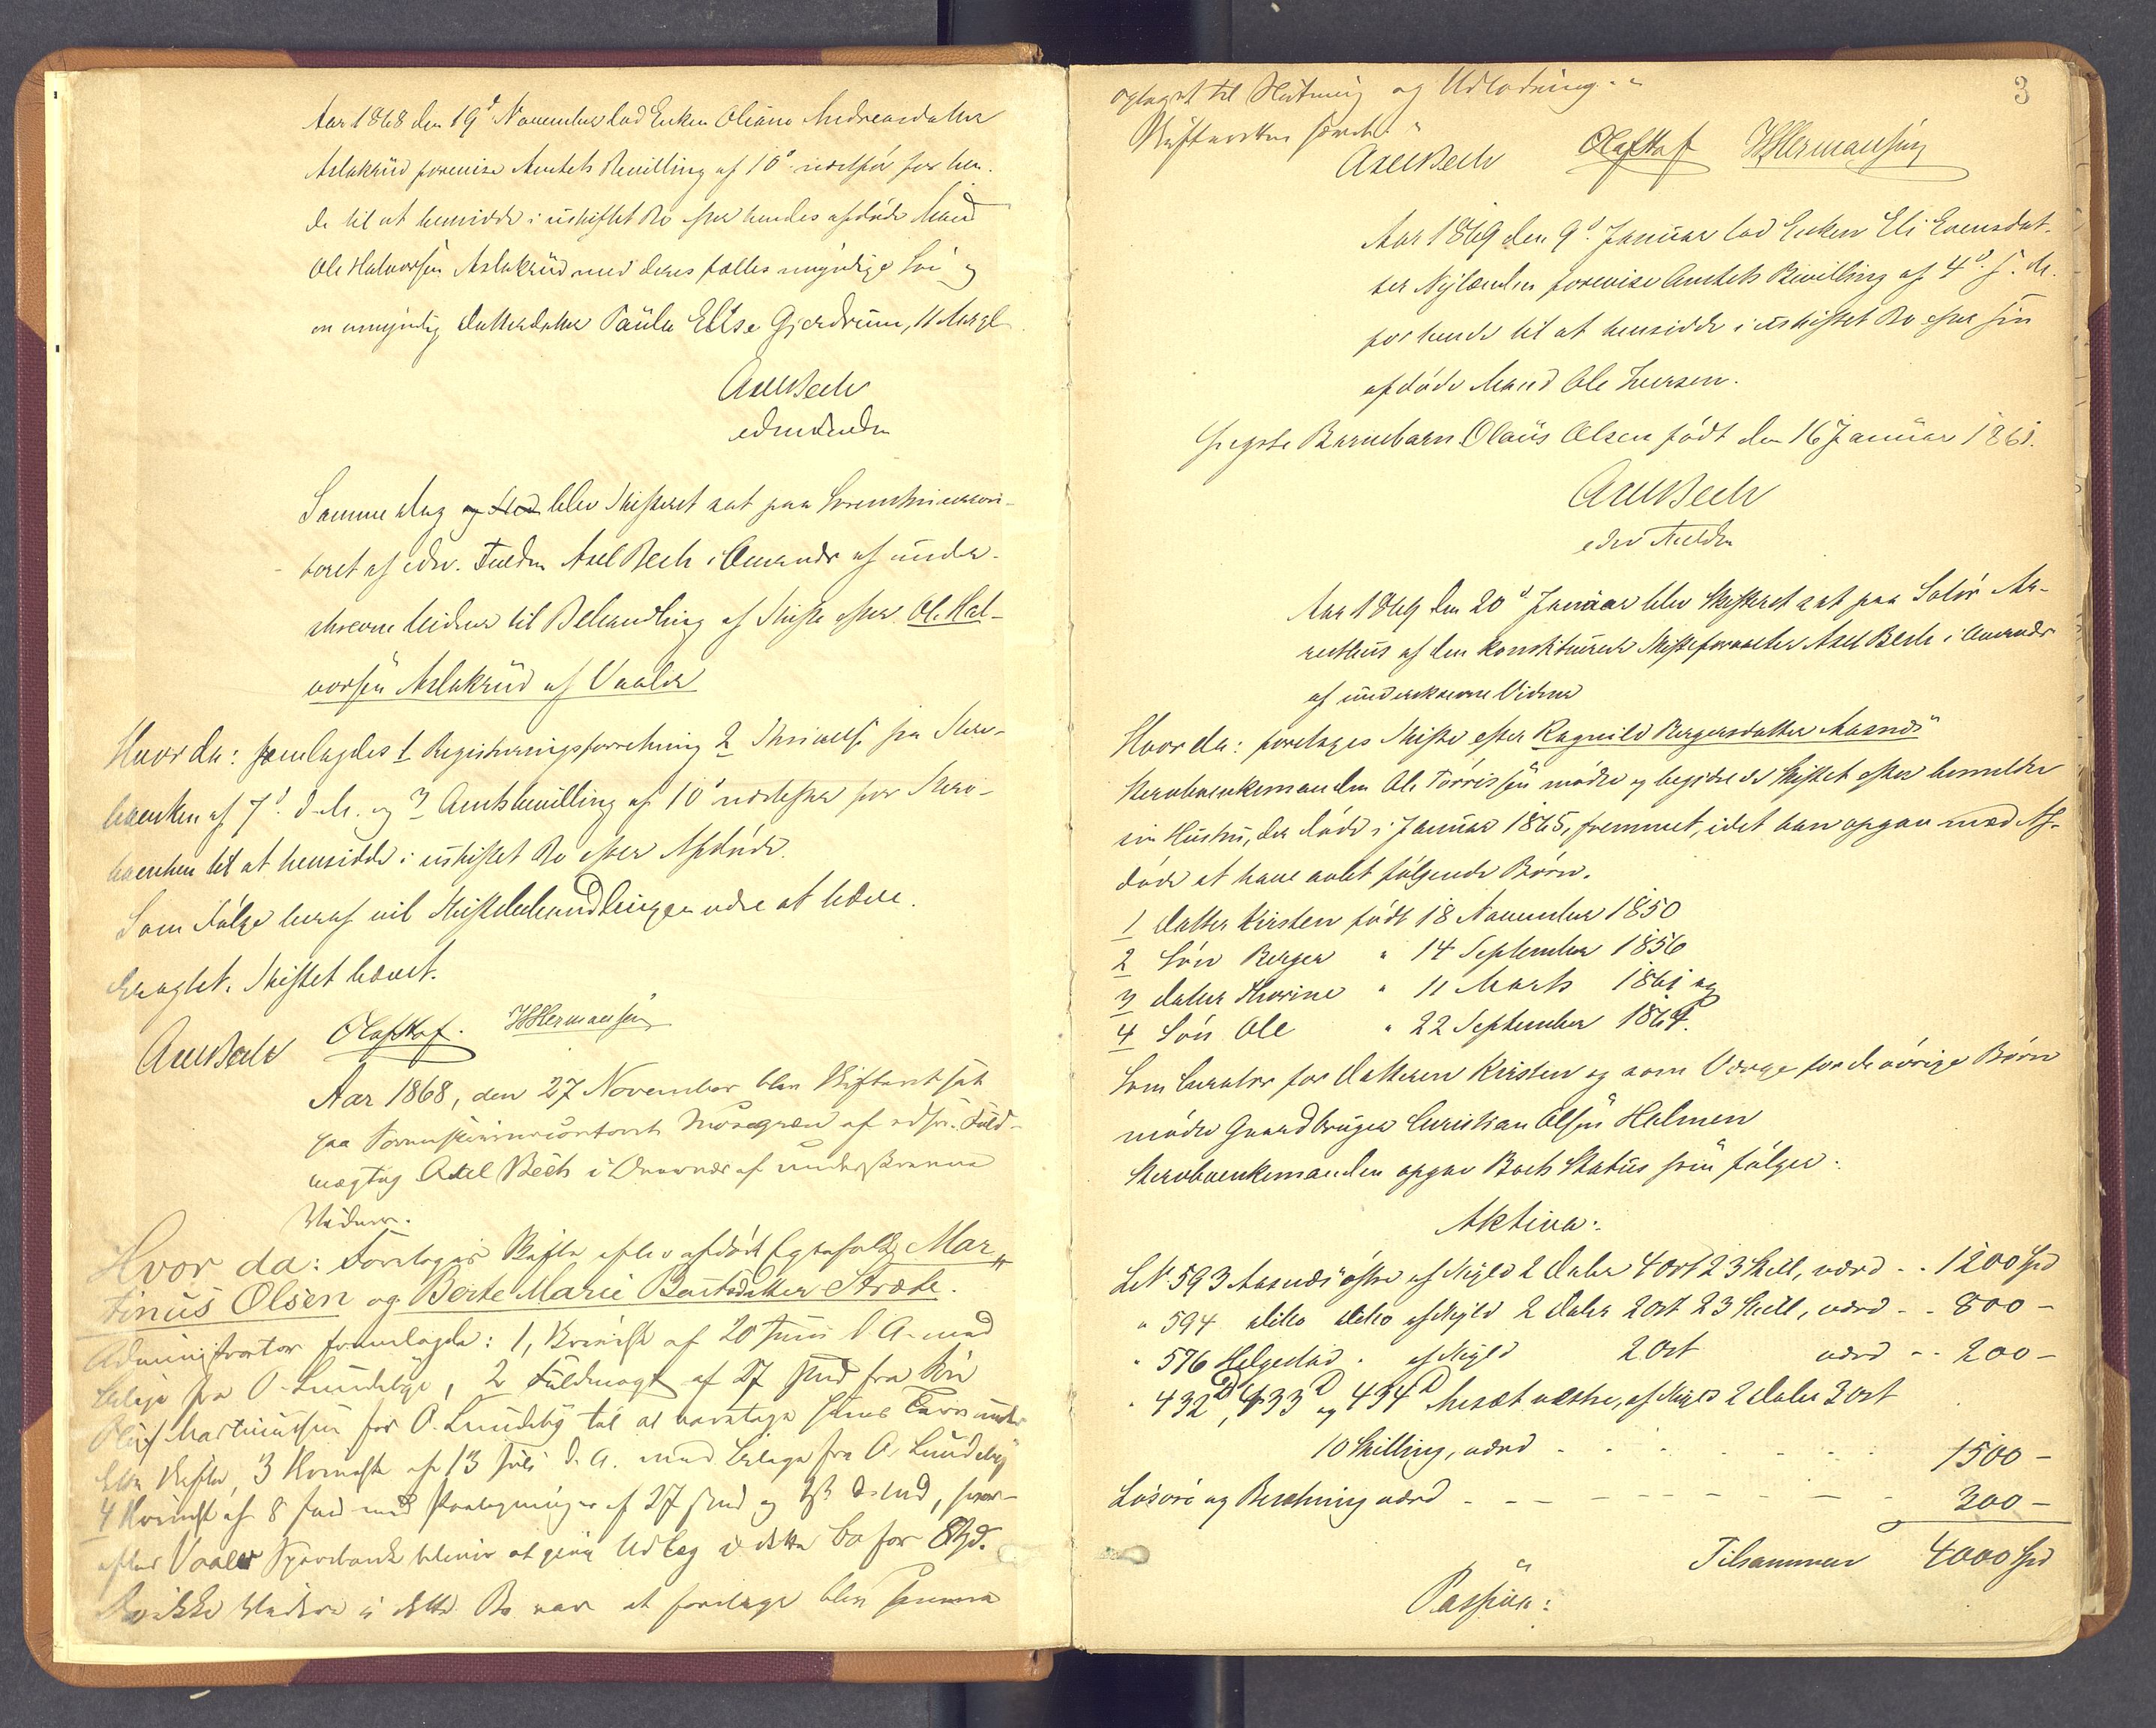 Aar 1868 den 19d November lod Enken Oliane Andreasdatter
Aslakrud forevise Amtets Bevilling af 10d næstfør for hen-
de til at hensidde i uskiftet Bo efter hendes afdøde Mand
Ole Halvorsen Aslakrud med deres fælles umyndige Søn og
en umyndig Datterdatter Paula Elise Gjerdrum, 11 Aar gl.
Axel Bech
edsv
Samme Dag og Sted blev Skifteret sat paa Sorenskrivercon-
toret af edsv. Fuldm Axel Bech i Overvær af under-
skrevne Vidner til Behandling af Skifte efter Ole Hal-
vorsen Aslakrud af Vaaler
Hvor da: fremlagdes 1 Registreringsforretning 2 Skrivelse fra Sterv-
boenken af 7d d. M. og 3 Amtsbevilling af 10d næstefter for Sterv-
boenken til at hensidde i uskiftet Bo efter Afdøde.
Som Følge heraf vil Skiftebehandlingen være at hæve.
Eragtet. Skiftet hævet.
Axel Bech Olaf Hof. H Hermansen
Aar 1868, den 27 November blev Skifteret sat
paa Sorenskrivercontoret Mosegræn af edsv. Fuld-
mægtig Axel Bech i Overvær af underskrevne
Vidner.
Hvor da: Foretages Skifte efter afdøde Egtefolk Mar-
tinus Olsen og Berte Marie Baardsdatter Stræte.
Administrator fremlagde: 1, Skrivelse af 20 Juni d. A. med
Bilage fra O. Lundeby, 2 Fuldmagt af 27 fra Søn
Oluf Martinussen for O. Lundeby til at varetage hans Tarv under
dette Skifte, 3 Skrivelse af 13 Juli d. A. med Bilage fra O. Lundeby
4 Skrivelse af 8 med Paategninger af 27 og, hvor-
efter Vaaler Sparebank at give Udlæg i dette Bo for 8 Spd.
Da ikke Videre i dette Bo var at foretage blev samme
3
optaget til Slutning og Udlodning.
Skifteretten hævet.
Axel Bech Olaf Hof H Hermansen
Aar 1869 den 9d Januar lod Enken Eli Evensdat-
ter Nylænden forevise Amtets Bevilling af 4d d. M.
for hende til at hensidde i uskiftet Bo efter sin
afdøde Mand Ole Larsen.
Yngste Barnebarn Olaus Olsen født den 16 Januar 1861.
Axel Bech
edsv Fuldm
Aar 1869 den 20d Januar blev Skifteret sat paa Solør Ar-
resthus af den konstituerede Skifteforvalter Axel Bech i Overvær
af underskrevne Vidner
Hvor da: foretages Skifte efter Ragnild Bergersdatter Aasnæs
Stervboenkemanden Ole Torrissen mødte og begjærede Skiftet efter bemeldte
sin Hustru, der døde i Januar 1865, fremmet, idet han opgav med Af-
døde at have avlet følgende Børn.
1 Datter Kirsten født 18 November 1850
2 Søn Berger " 14 September 1856
3 Datter Thorine " 11 Marts 1861 og
4 Søn Ole " 22 September 1864.
Som Curator for Datteren Kirsten og som Værge for de øvrige Børn
mødte Gaardbruger Christian Olsen Holmen
Stervboenkemanden opgav Boets Status som følger:
Aktiva:
L.N. 593 Aasnæs østre af Skyld 2 Daler 4 Ort 23 Skill, værd - - 1200 Spd
" 594 ditto ditto af Skyld 2 Daler 2 Ort 23 Skill, værd - - 800 -
" 576 Helgestad " af Skyld 2 Ort værd - - 200 -
" 432b, 433b og 434b vestre, af Skyld 2 Daler 3 Ort
10 Skilling, værd - - - - - - 1500 -
Løsøre og Besætning værd - - - - - - - 300 -
Tilsammen 4000 Spd
Passiva: